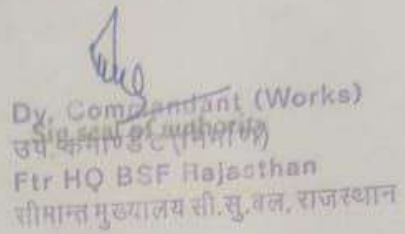 Dy. Commandant (Works)
Sig seal of authority
उप कमाण्डेंट (निर्माण)
Ftr HQ BSF Rajasthan
सीमान्त मुख्यालय सी.सु.बल, राजस्थान